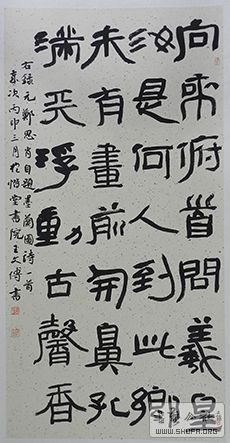 向來俯首問羲皇
汝是何人到此鄉
未有畫前開鼻孔
滿天浮動古馨香
右録元鄭思肖自題墨蘭圖詩一首
歲次丙申三月於堂書院王文傅書
WWW.SHUFA.ORG